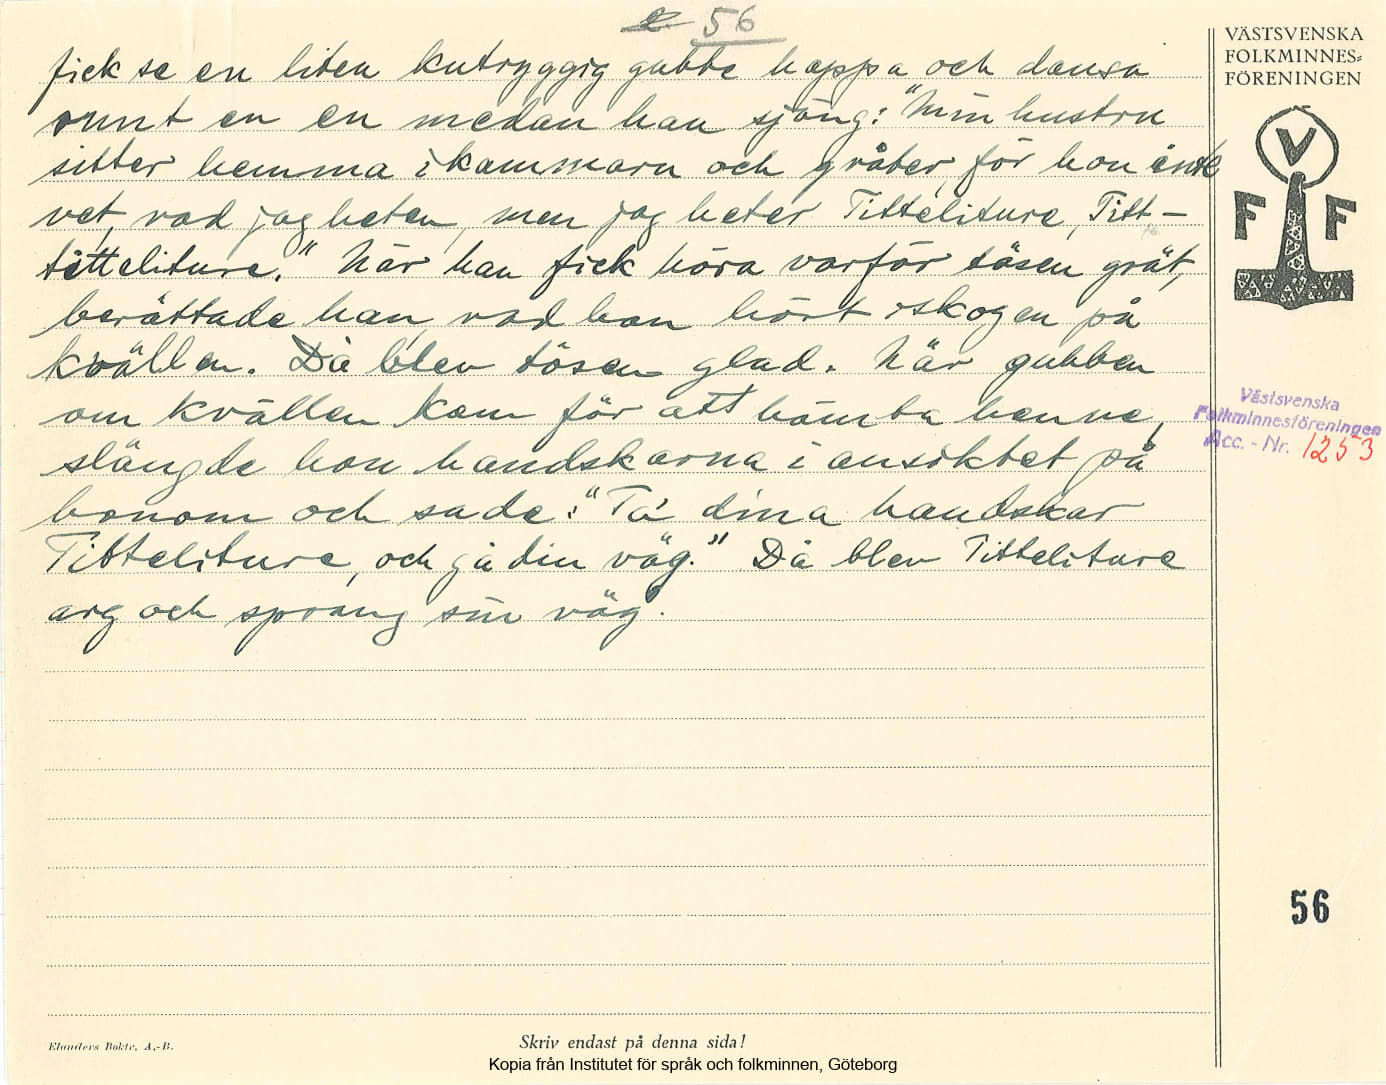 2 56
fick se en liten kutryggig gubbe hoppa och dansa
runt en en medan han sjöng: "Min hustru
sitter hemma i kammarn och gråter, för hon inte
vet, vad jag heter, men jag heter Titteliture, Titt-
titteliture." När han fick höra varför tösen grät,
berättade han, vad han hört i skogen på
kvällen. Då blev tösen glad. När gubben
om kvällen kom för att hämta henne,
slängde hon handskarna i ansiktet på
honom och sade: "Ta dina handskar
Titteliture, och gå din väg." Då blev Titteliture
arg och sprang sin väg.
VÄSTSVENSKA
FOLKMINNES-
FÖRENINGEN
V
F F
Västsvenska
Folkminnesföreningen
Acc. - Nr. 1253
56
Elanders Boktr. A.-B.
Skriv endast på denna sida!
Kopia från Institutet för språk och folkminnen, Göteborg